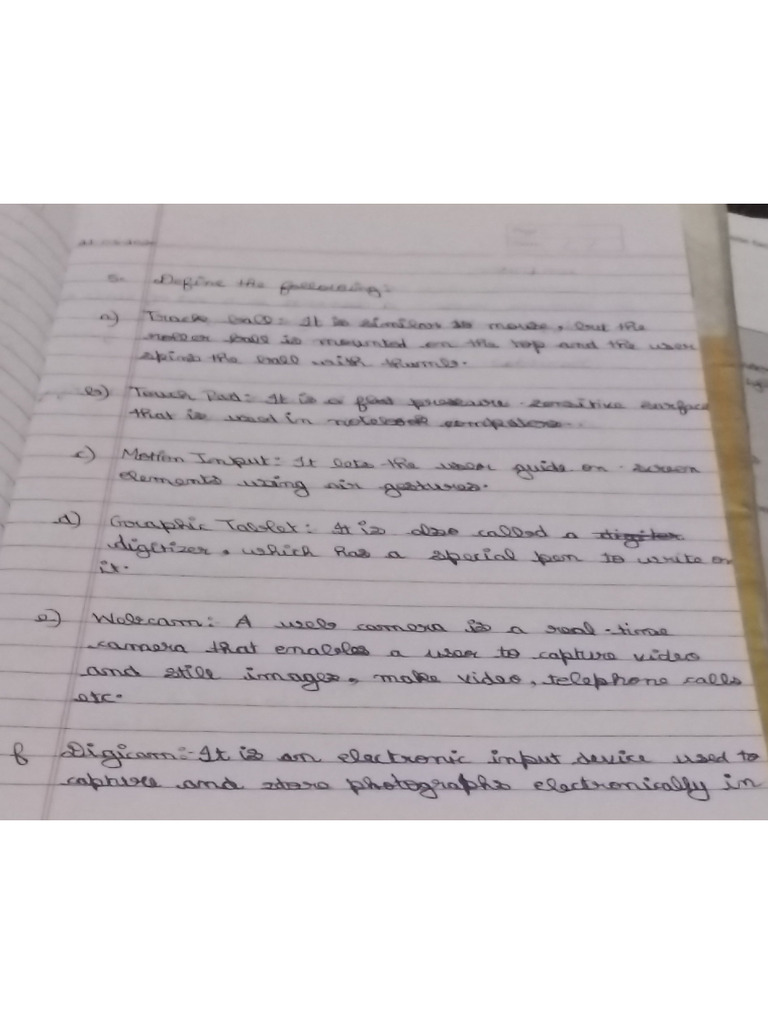 5. Define the following:
a) Track ball: It is similar to mouse, but the
roller ball is mounted on the top and the user
spins the ball with thumb.
b) Touch Pad: It is a flat pressure-sensitive surface
that is used in notebook computers.
c) Motion Input: It lets the user guide on-screen
elements using air gestures.
d) Graphic Tablet: It is also called a
digitizer, which has a special pen to write on
it.
e) Webcam: A web camera is a real-time
camera that enables a user to capture video
and still images, make video, telephone calls
etc.
f Digicam:- It is an electronic input device used to
capture and store photographs electronically in